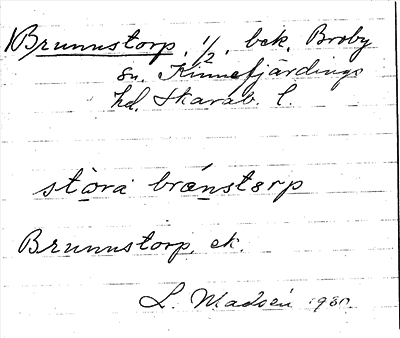 Brunnstorp, 1/2, bek. Broby
sn. Kinnefjärdings
hd. Skarab. l.
stòra brǽnstɘrp
Brunnstorp, ek.
L. Madsén 1930.